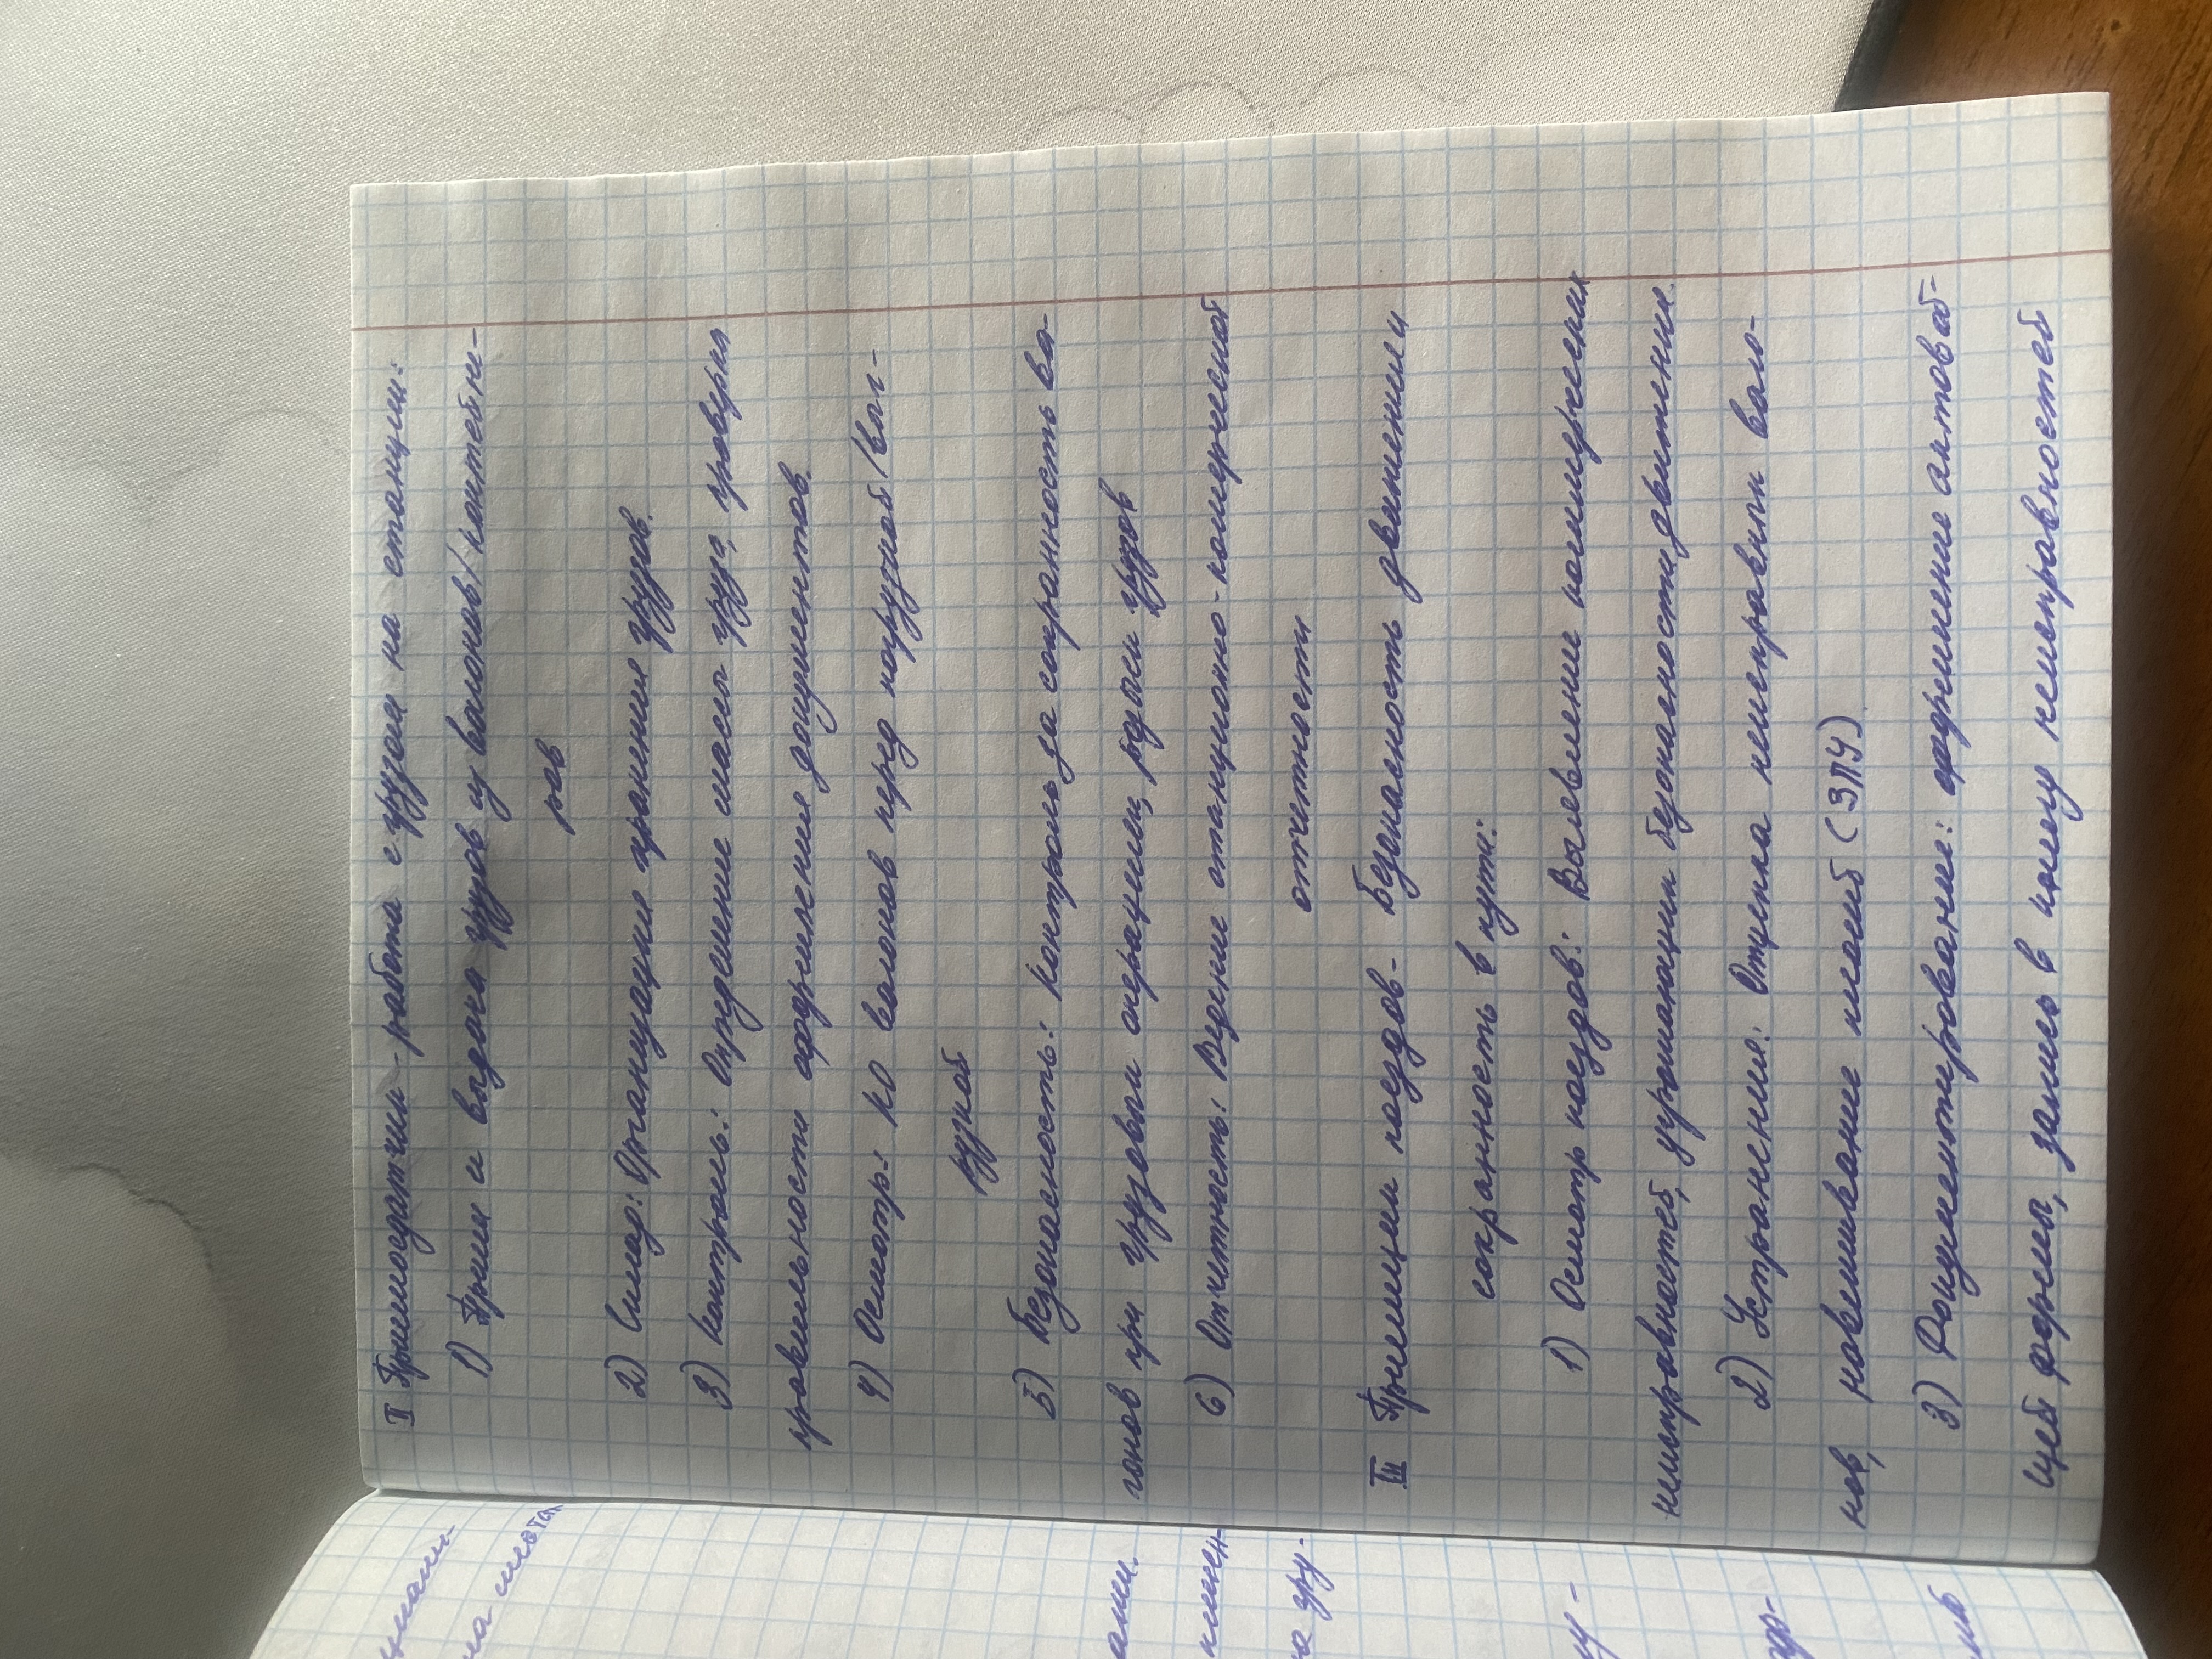 II Приемосдатчик - работа с грузом на станции:
1) Прием и выдача грузов из вагонов/контейне-
ров
2) Склад: Организация хранения грузов.
3) Контроль: Определение массы груза, проверка
правильности оформления документов.
4) Осмотр: КО вагонов перед погрузкой/выг-
рузкой
5) Безопасность: Контроль за сохранность ва-
гонов при грузовой операции, розыск грузов
6) Отчетность: Ведение станционно-коммерческой
отчетности
III Приемщик поездов - Безопасность движения и
сохранность в пути:
1) Осмотр поездов: Выявление коммерческих
неисправностей, угрожающих безопасности движения.
2) Устранение: Отцепка неисправных ваго-
нов, навешивание пломб (ЗПУ)
3) Документирование: оформление актов об-
щей формы, запись в книгу неисправностей
на
ами.
гру-